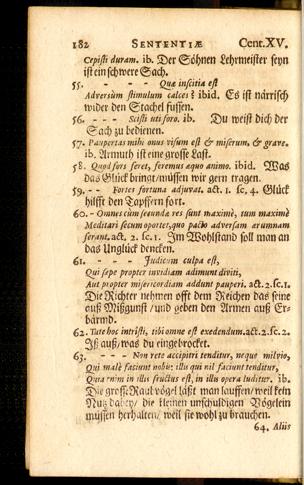 182 SENTENTIÆ Cent.XV.
Cepisti duram. ib. Der Söhnen Lehrmeister seyn
ist ein schwere Sach.
55. - - - - Quæ inscitia est
Adversùm stimulum calces? ibid. Es ist närrisch
wider den Stachel fussen.
56. - - - Scisti uti foro. ib. Du weist dich der
Sach zu bedienen.
57. Paupertas mihi onus visum est & miserum, & grave.
ib. Armuth ist eine grosse Last.
58. Quod fors feret, feremus æquo animo. ibid. Was
das Glück bringt/müssen wir gern tragen.
59. - - Fortes fortuna adjuvat. act. 1. sc. 4. Glück
hilfft den Tapffern fort.
60. - Omnes cùm secunda res sunt maximè, tum maximè
Meditari secum oportet, quo pacto adversam ærumnam
ferant. act. 2. sc. 1. Im Wohlstand soll man an
das Unglück dencken.
61. - - - Judicum culpa est,
Qui sepe propter invidiam adimunt diviti,
Aut propter misericordiam addunt pauperi. act. 2. sc. 1.
Die Richter nehmen offt dem Reichen das seine
auß Mißgunst / und geben den Armen auß Er-
bärmd.
62. Tute hoc intristi, tibi omne est exedendum. act. 2. sc. 2.
Iß auß/was du eingebrocket.
63. - - - Non rete accipitri tenditur, neque milvio,
Qui malè faciunt nobis: illis qui nil faciunt tenditur,
Quia enim in illis fructus est, in illis opera luditur. ib.
Die grosse Raubvögel läßt man lauffen/weil kein
Nutz dabey/ die kleinen unschuldigen Vögelein
müssen herhalten/ weil sie wohl zu brauchen.
64. Aliis